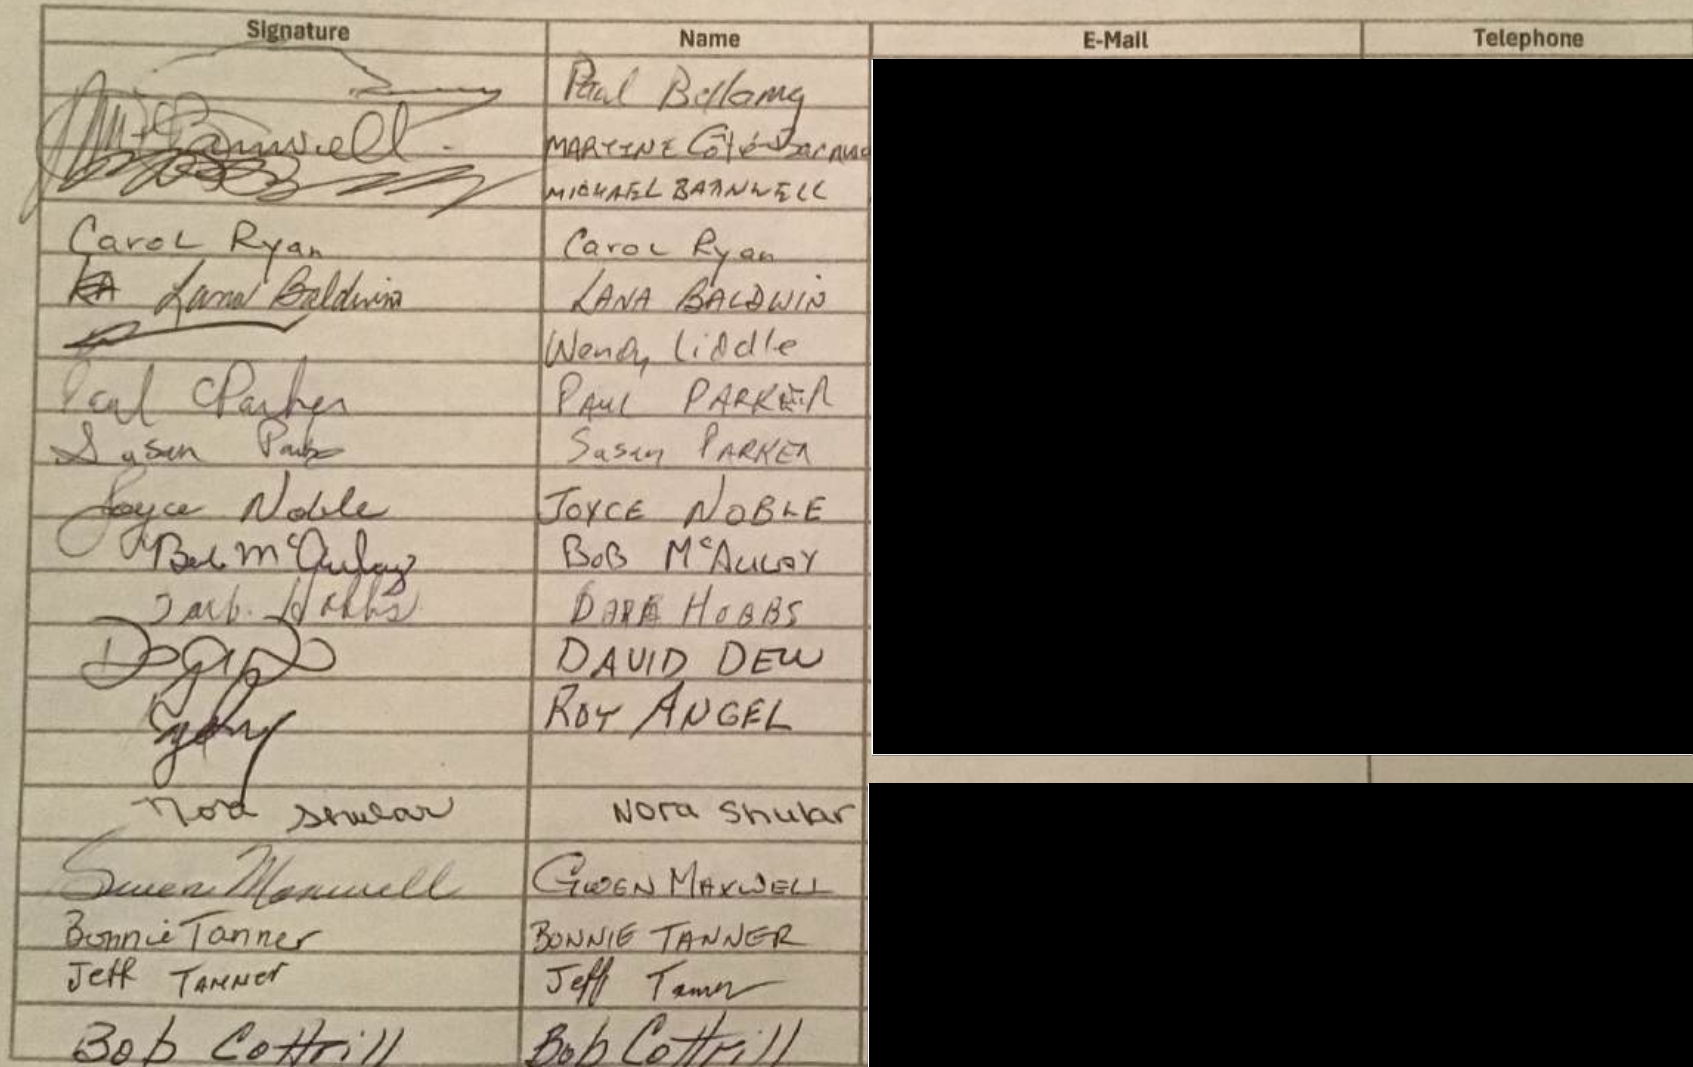 Signature Name E-Mail Telephone
Paul Bellamy
Barnwell MARTINE Côté
MICHAEL BARNWELL
Carol Ryan Carol Ryan
Lana Baldwin LANA BALDWIN
Wendy Liddle
Paul Parker PAUL PARKER
Susan Susan PARKER
Joyce Noble JOYCE NOBLE
Bob McAulay BOB McAULAY
Hobbs HOBBS
DAVID DEW
ROY ANGEL
Nora Shular Nora Shular
Gwen Maxwell GWEN MAXWELL
Bonnie Tanner BONNIE TANNER
Jeff TANNER Jeff Tanner
Bob Cottrill Bob Cottrill